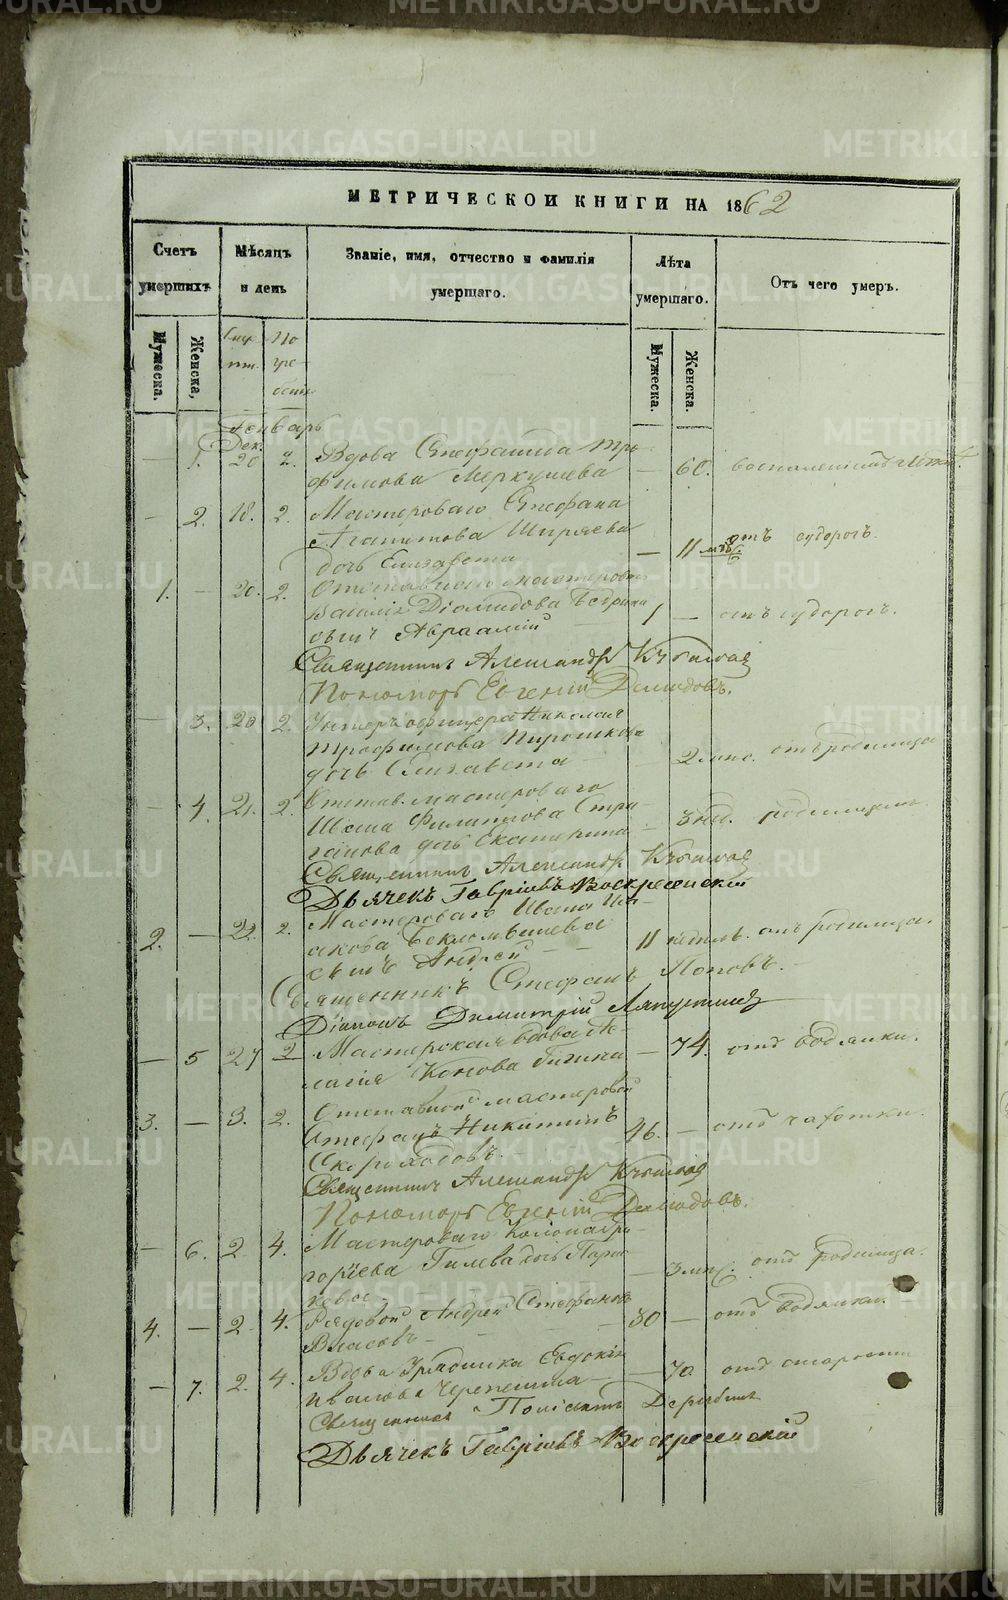 МЕТРИЧЕСКОЙ КНИГИ НА 1862
Счетъ умершихъ
Мѣсяцъ и день
Званіе, имя, отчество и фамилія умершаго.
Лѣта умершаго.
Отъ чего умер.
Мужеска.
Женска.
По гре бенія
Мужеска.
Женска.
Генварь
Дек.
1. 20 2. Вдова Стефанида Тро
фимова Меркушева — 60.
— 2. 18. 2. Мастероваго Стефана
Агапитова Ширяева
дочь Елизавета — 11 отъ судорогъ.
1. — 20. 2. Отставнаго мастероваго
Василія Діомидова
сынъ Авраамій 1 — отъ судорогъ.
Священникъ Александръ
Пономарь Евгеній Демидовъ.
— 3. 20 2. Унтеръ офицера Николая
Трофимова Пирожкова
дочь Елизавета — 2 мѣс. отъ родимца
— 4. 21. 2. Отстав. мастероваго
Ивана Филиппова Стра
ганова дочь Екатерина — 3 нед. родимцемъ
Священникъ Александръ
Дьячекъ Гавріилъ Воскресенскій
2. — 22. 2. Мастероваго Ивана
сынъ Андрей 11 недѣль отъ родимца.
Священникъ Стефанъ Поповъ.
Діаконъ Димитрій Ляпустинъ
— 5 27 2 Мастерская вдова Пе
лагія — 74. отъ водянки.
3. — 3. 2. Отставной мастеровой
Стефанъ Никитинъ
Скороходовъ. 46. — отъ чахотки.
Священникъ Александръ
Пономарь Евгеній Демидовъ.
— 6. 2. 4. Мастероваго
Гилева дочь Парас
кева — 3 мѣс. отъ родимца.
4. — 2. 4. Рядовой Андрей Стефановъ
Власовъ 30 — отъ водянки.
— 7. 2. 4. Вдова Урядника Евдокія
Иванова Черепанова — 70 отъ старости
Священникъ Поліевктъ
Дьячекъ Гавріилъ Воскресенскій
METRIKI.GASO-URAL.RU